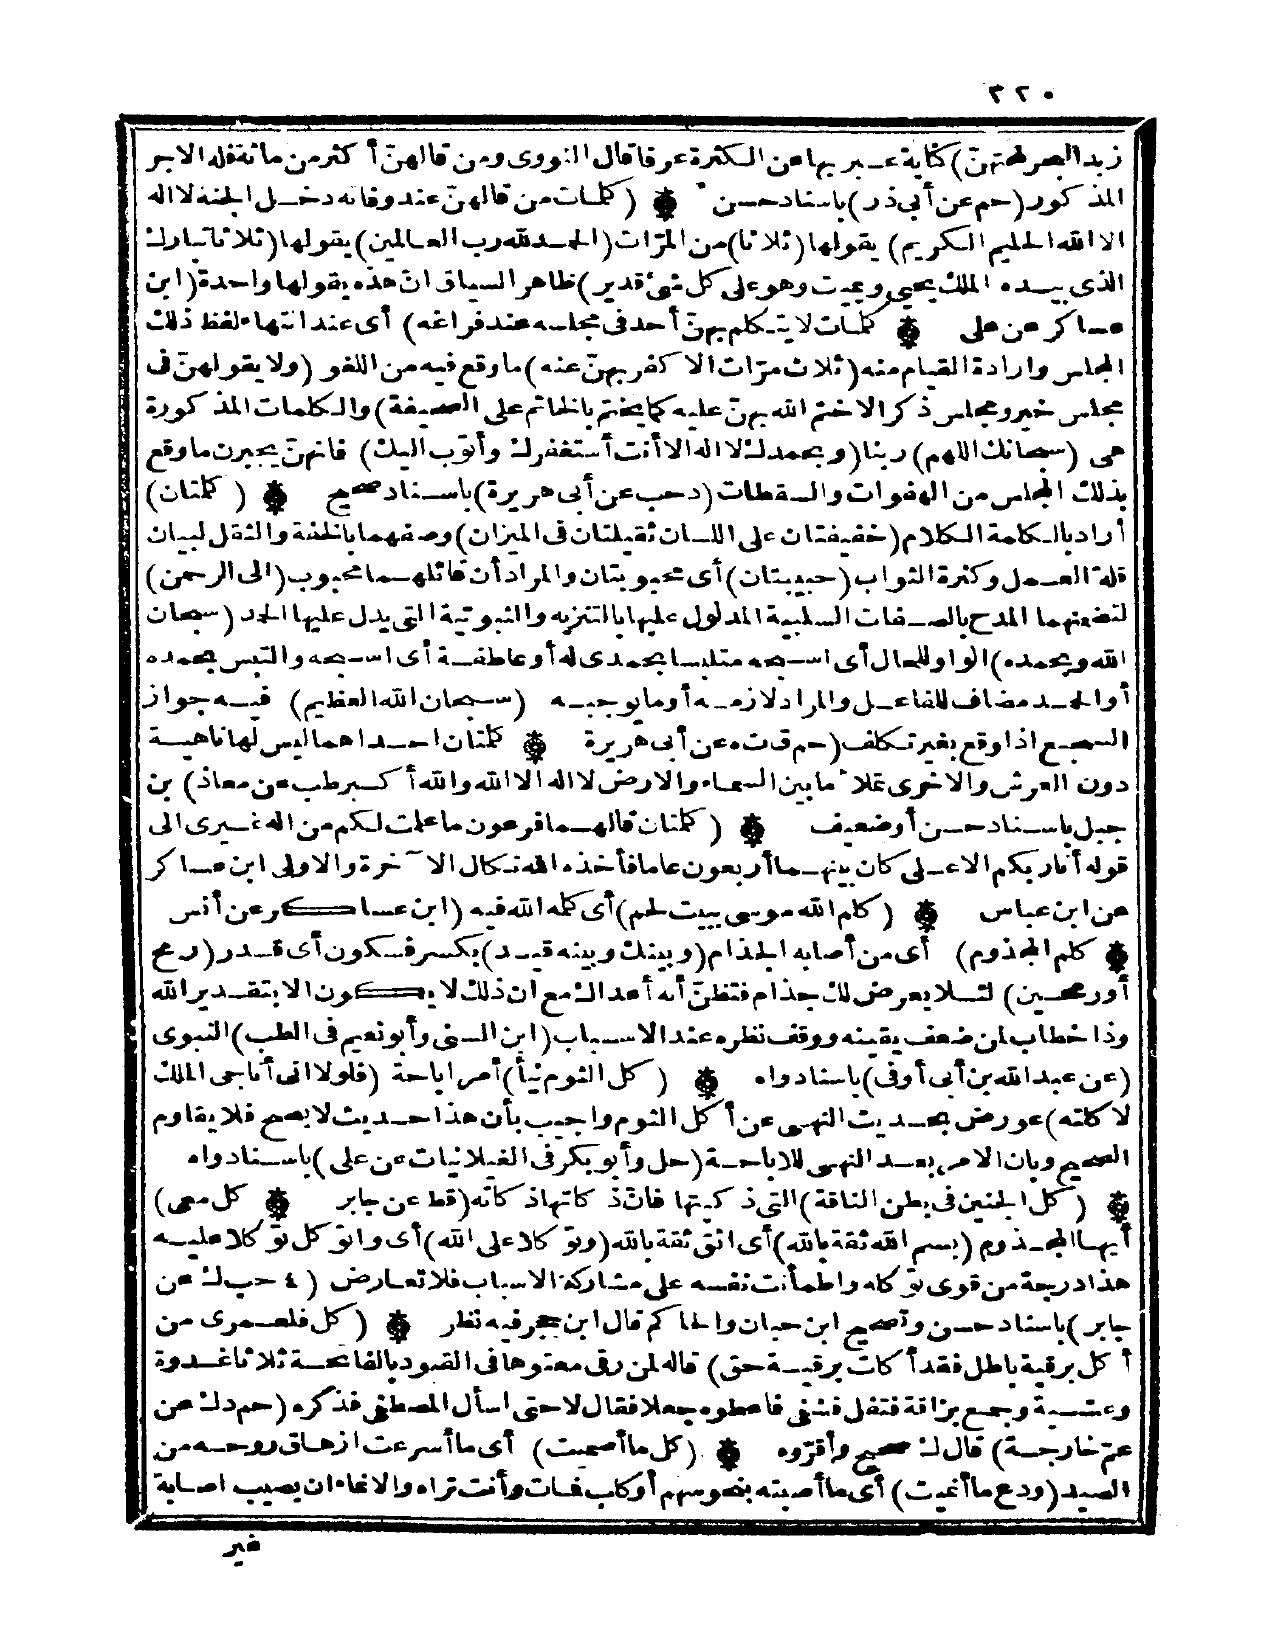 ٢٢٠
زبد البحر لمحتهنّ) كناية عبر بها عن الكثرة عرفا قال النووى ومن قالهنّ أكثر من مائة فله الاجر
المذكور (حم عن أبى ذر) باسناد حسن ۞ (كلمات من قالهنّ عند وفاته دخل الجنة لا اله
الا الله الحليم الكريم) يقولها (ثلاثا) من المرّات (الحمد لله رب العالمين) يقولها (ثلاثا تبارك
الذى بيده الملك يحيى ويميت وهو على كل شئ قدير) ظاهر السياق انّ هذه يقولها واحدة (ابن
عساكر عن على ۞ كلمات لا يتكلم بهنّ أحد فى مجلسه عند فراغه) أى عند انتهاء لفظ ذلك
المجلس وارادة القيام منه (ثلاث مرّات الا كفر بهنّ عنه) ما وقع فيه من اللغو (ولا يقولهنّ فى
مجلس خير ومجلس ذكر الا ختم الله بهنّ عليه كما يختم بالخاتم على الصحيفة) والكلمات المذكورة
هى (سبحانك اللهم) ربنا (وبحمدك لا اله الا أنت أستغفرك وأتوب اليك) فانهنّ يجبرن ما وقع
بذلك المجلس من الهفوات والسقطات (د حب عن أبى هريرة) باسناد صحيح ۞ (كلمتان)
أراد بالكلمة الكلام (خفيفتان على اللسان ثقيلتان فى الميزان) وصفهما بالخفة والثقل لبيان
قلة العمل وكثرة الثواب (حبيبتان) أى محبوبتان والمراد أن قائلهما محبوب (الى الرحمن)
لتضمنهما المدح بالصفات السلبية المدلول عليها بالتنزيه والثبوتية التى يدل عليها الحمد (سبحان
الله وبحمده) الواو للحال أى اسبحه متلبسا بحمدى له أو عاطفة أى اسبحه والتبس بحمده
أو الحمد مضاف للفاعل والمراد لازمه أو ما يوجبه (سبحان الله العظيم) فيه جواز
السجع اذا وقع بغير تكلف (حم ق ت ه عن أبى هريرة ۞ كلمتان احداهما ليس لها ناهية
دون العرش والاخرى تملأ ما بين السماء والارض لا اله الا الله والله أكبر طب عن معاذ) بن
جبل باسناد حسن أو ضعيف ۞ (كلمتان قالهما فرعون ما علمت لكم من اله غيرى الى
قوله أنا ربكم الاعلى كان بينهما أربعون عاما فأخذه الله نكال الآخرة والاولى ابن عساكر
عن ابن عباس ۞ (كلم الله موسى ببيت لحم) أى كلمه الله فيه (ابن عساكر عن أنس
۞ كلم المجذوم) أى من أصابه الجذام (وبينك وبينه قيد) بكسر فسكون أى قدر (رمح
أو رمحين) لئلا يعرض لك جذام فتظنّ أنه أعداك مع ان ذلك لا يكون الا بتقدير الله
وذا خطاب لمن ضعف يقينه ووقف نظره عند الاسباب (ابن السنى وأبو نعيم فى الطب) النبوى
(عن عبد الله بن أبى أوفى) باسناد واه ۞ (كل الثوم نيأ) أمر اباحة (فلولا انى أناجى الملك
لا كلته) عورض بحديث النهى عن أكل الثوم واجيب بأن هذا حديث لا يصح فلا يقاوم
الصحيح وبان الامر بعد النهى للاباحة (حل وأبو بكر فى الغيلانيات عن على) باسناد واه
۞ (كل الجنين فى بطن الناقة) التى ذكيتها فانّ ذكاتها ذكاته (قط عن جابر ۞ كل معى)
أيها المجذوم (بسم الله ثقة بالله) أى اثق ثقة بالله (وتوكلا على الله) أى وأتوكل توكلا عليه
هذا درجة من قوى توكله واطمأنت نفسه على مشاركة الاسباب فلا تعارض (٤ حب ك عن
جابر) باسناد حسن وتصحيح ابن حبان والحاكم قال ابن حجر فيه نظر ۞ (كل فلعمرى من
أكل برقية باطل فقد أكلت برقية حق) قاله لمن رقى معتوها فى القيود بالفاتحة ثلاثا غدوة
وعشية وجمع بزاقه فتفل فشفى فاعطوه جعلا فقال لا حتى اسأل المصطفى فذكره (حم د ك عن
عمّ خارجة) قال ك صحيح وأقرّوه ۞ (كل ما أصميت) أى ما أسرعت ازهاق روحه من
الصيد (ودع ما أنميت) أى ما أصبته بنحو سهم أو كلب فمات وأنت تراه والانماء ان يصيب اصابة
غير